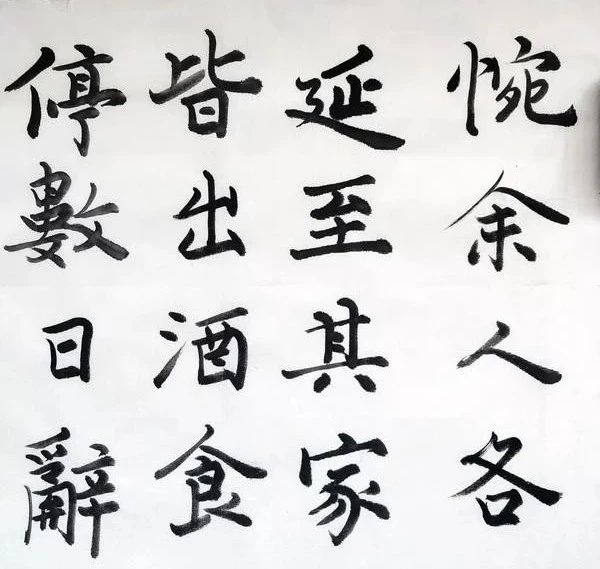 惋余人各
延至其家
皆出酒食
停數日辭